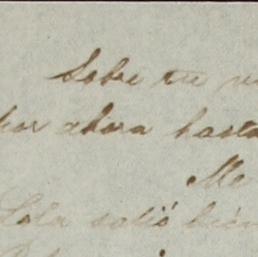 Sobre tu
por ahora hasta
Me
Lola salió bien